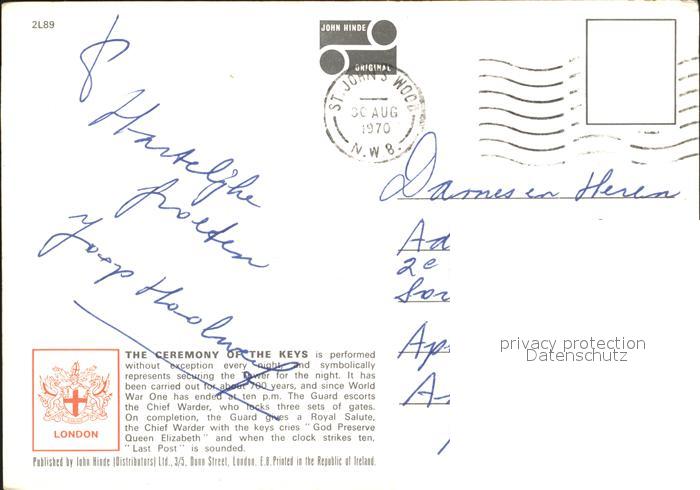 2L89
JOHN HINDE
ORIGINAL
ST. JOHN'S WOOD
30 AUG
1970
N.W.8.
Hartelijke
groeten
Joop
Dames en Heren
Ad
2e
Sor
Ap
A
privacy protection
Datenschutz
THE CEREMONY OF THE KEYS is performed
without exception every night and symbolically
represents securing the Tower for the night. It has
been carried out for about 700 years, and since World
War One has ended at ten p.m. The Guard escorts
the Chief Warder, who locks three sets of gates.
On completion, the Guard gives a Royal Salute,
the Chief Warder with the keys cries "God Preserve
Queen Elizabeth" and when the clock strikes ten,
"Last Post" is sounded.
LONDON
Published by John Hinde (Distributors) Ltd., 3/5, Dunn Street, London, E.8. Printed in the Republic of Ireland.